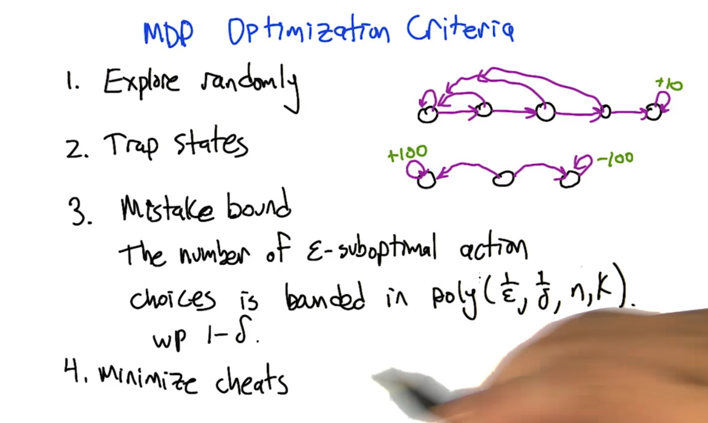 MDP Optimization Criteria
1. Explore randomly
+10
2. Trap States
+100
-100
3. Mistake bound
The number of ε-suboptimal action
choices is bounded in poly(1/ε, 1/δ, n, k).
wp 1-δ.
4. minimize cheats